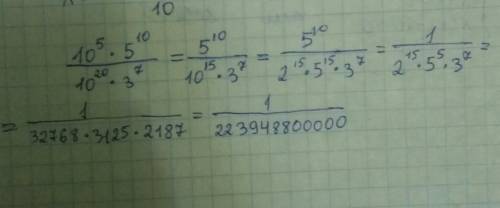 10
10⁵·5¹⁰/10²⁰·3⁷ = 5¹⁰/10¹⁵·3⁷ = 5¹⁰/2¹⁵·5¹⁵·3⁷ = 1/2¹⁵·5⁵·3⁷ =
= 1/32768·3125·2187 = 1/223948800000